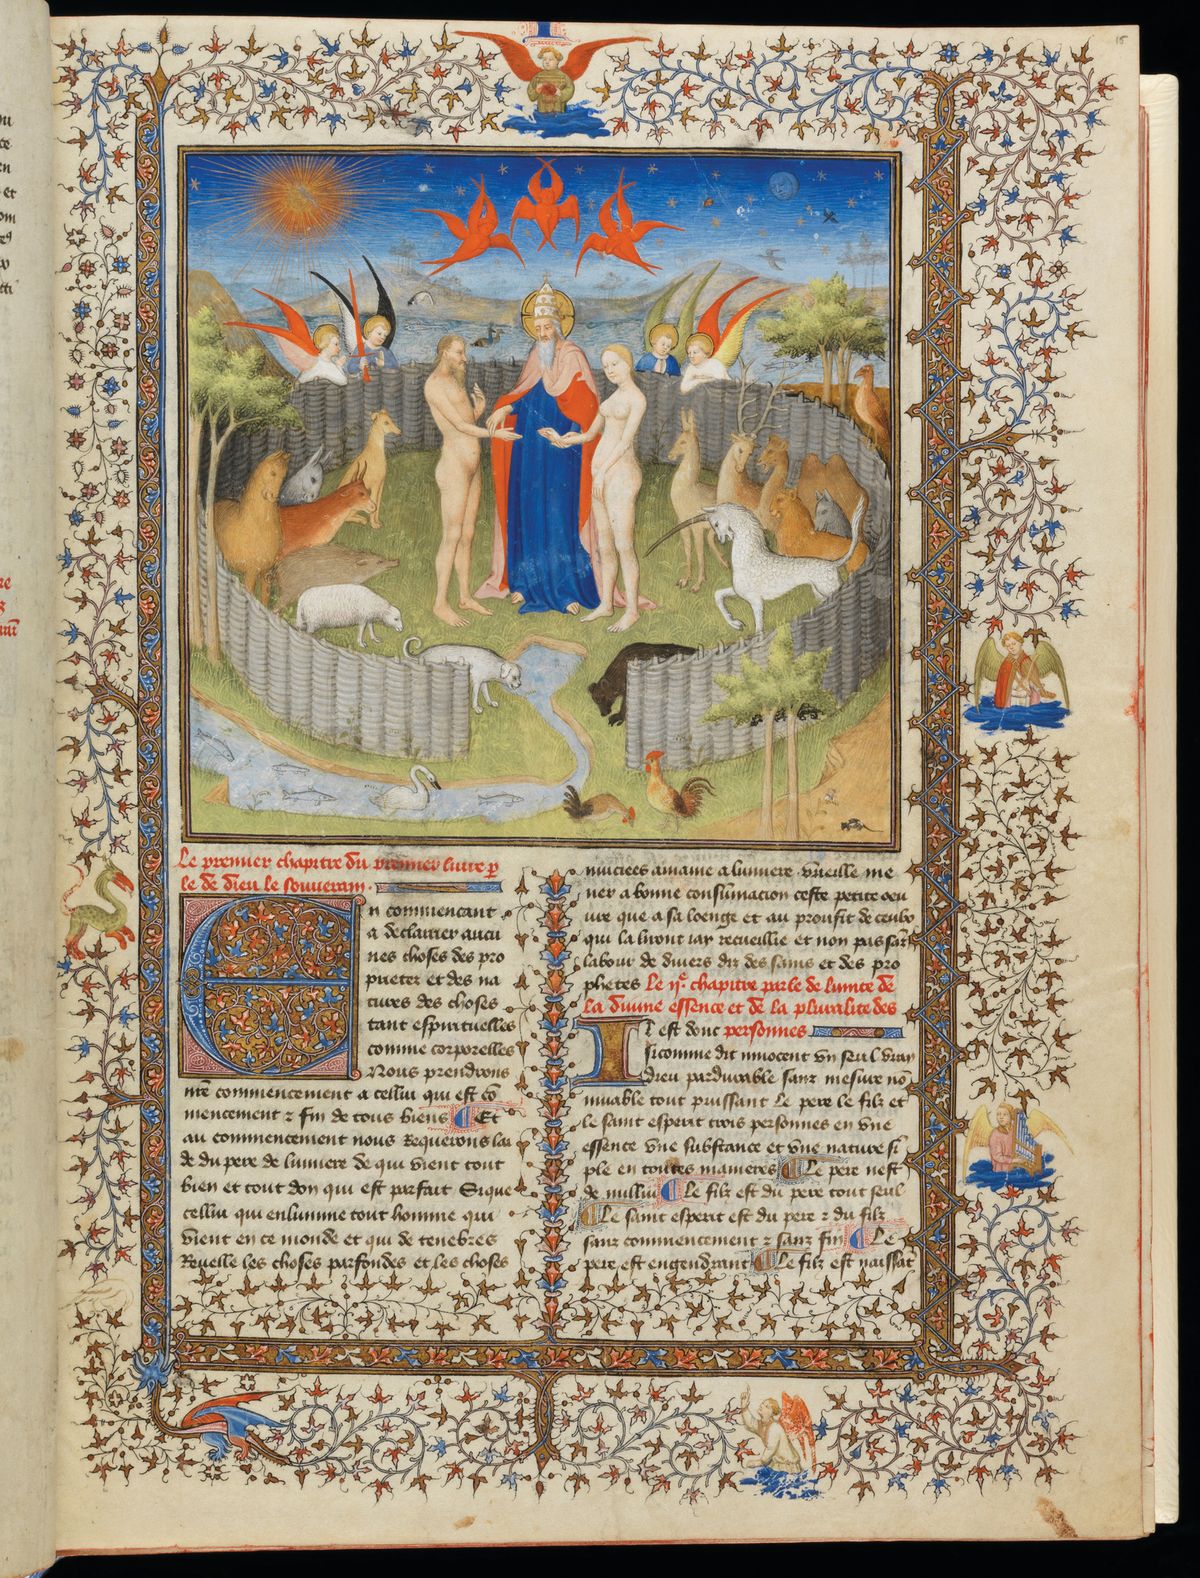 15
Le premier chapitre du premier livre p
le de dieu le souverain.
En commencant
a declairer aucu
nes choses des pro
prietez et des na
tures des choses
tant espirituelles
comme corporelles
Nous prendrons
nre commencement a cellui qui est co
mencement z fin de tous biens Et
au commencement nous Requerons lai
de du pere de lumiere de qui vient tout
bien et tout don qui est parfait Si que
cellui qui enlumine tout homme qui
vient en ce monde et qui de tenebres
Revelle les choses parfondes et les choses
muciees amaine a lumiere vueille me
ner a bonne consumacion ceste petite oeu
vre que a sa loenge et au proufit de ceulx
qui la liront iay recueillie et non pas sans
labour de divers diz des sains et des pro
phetes Le ije chapitre parle de lunite de
la divine essence et de la pluralite des
Il est donc personnes
sicomme dit innocent vn seul vray
dieu pardurable sans mesure no
muable tout puissant Le pere le filz et
le saint esperit trois personnes en vne
essence vne substance et vne nature si
ple en toutes manieres Le pere nest
de nullui Le filz est du pere tout seul
Le saint esperit est du pere z du filz
sans commencement z sans fin Le
pere est engendrant Le filz est naissat